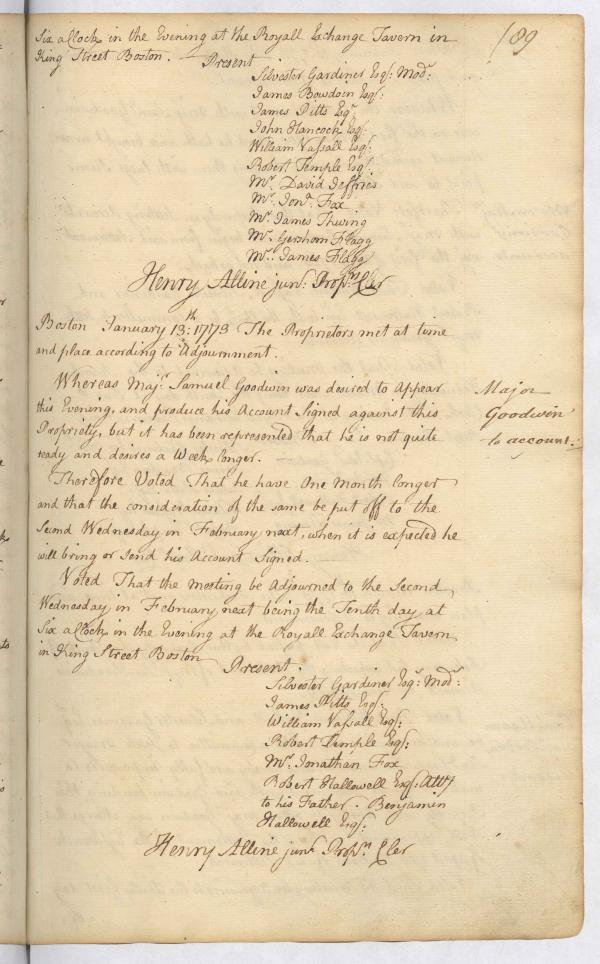 189
Six a Clock in the Evening at the Royall Exchange Tavern in
King Street Boston. — Present
Silvester Gardiner Esqr: Modr:
James Bowdoin Esqr:
James Pitts Esqr
John Hancock Esqr:
William Vassall Esqr:
Robert Temple Esqr:
Mr. David Jeffries
Mr. Jona. Fox
Mr. James Thwing
Mr. Gershom Flagg
Mr. James Flagg
Henry Alline junr: Proprs Cler
Boston January 13th: 1773 The Proprietors met at time
and place according to Adjournment.
Whereas Majr. Samuel Goodwin was desired to Appear
this Evening, and produce his Account Signed against this
Propriety, but it has been represented that he is not quite
ready and desires a Week longer. —
Major
Goodwin
to account:
Therefore Voted That he have One Month longer
and that the consideration of the same be put off to the
Second Wednesday in February next, when it is expected he
will bring or send his Account Signed. —
Voted That the meeting be Adjourned to the Second
Wednesday in February next being the Tenth day, at
Six a Clock in the Evening at the Royall Exchange Tavern
in King Street Boston
Present.
Silvester Gardiner Esqr: Modr:
James Pitts Esqr:
William Vassall Esqr:
Robert Temple Esqr:
Mr. Jonathan Fox
Robert Hallowell Esqr: Atty
to his Father. Benjamin
Hallowell Esqr:
Henry Alline junr Proprs Cler